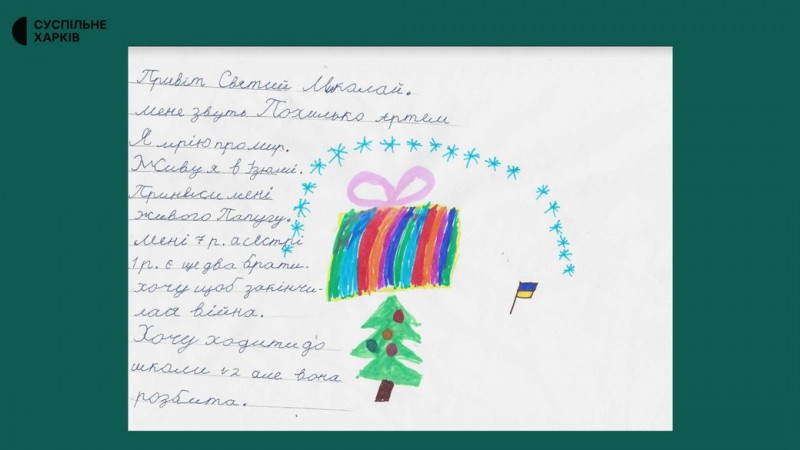 СУСПІЛЬНЕ
ХАРКІВ
Привіт Святий Миколай.
мене звуть Похилько Артем
Я мрію про мир.
Живу я в Ізюмі.
Принеси мені
живого Папугу.
мені 7 р. а сестрі
1 р. є ще два брати.
хочу щоб закінчи-
лася війна.
Хочу ходити до
школи №2 але вона
розбита.